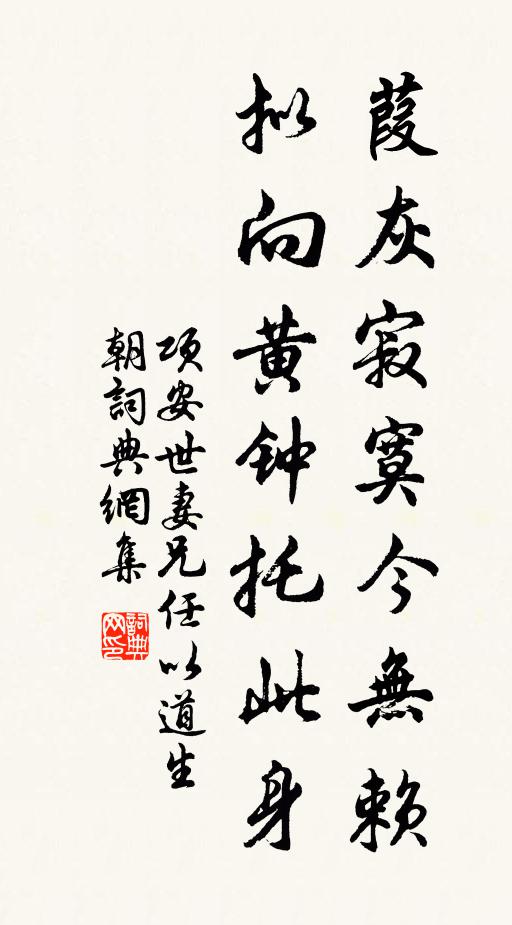 葭灰寂寞今無赖
拟向黃钟托此身
项安世妻兄任以道生
朝詞典網集
詞典
网印